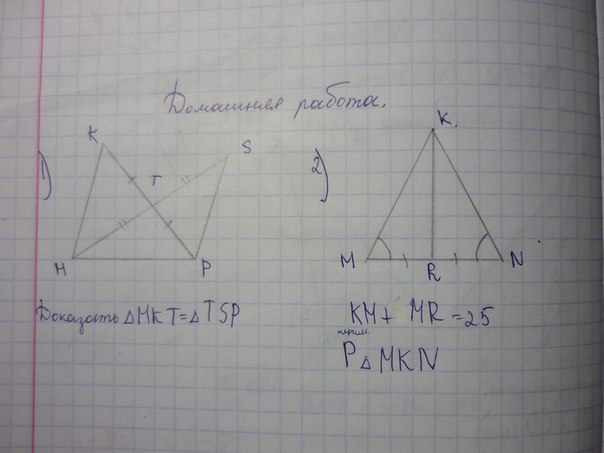 Домашняя работа.
1)
K
S
T
M
P
Доказать △MKT=△TSP
2)
K.
M
R
N
KM+ MR=25
P△MKN